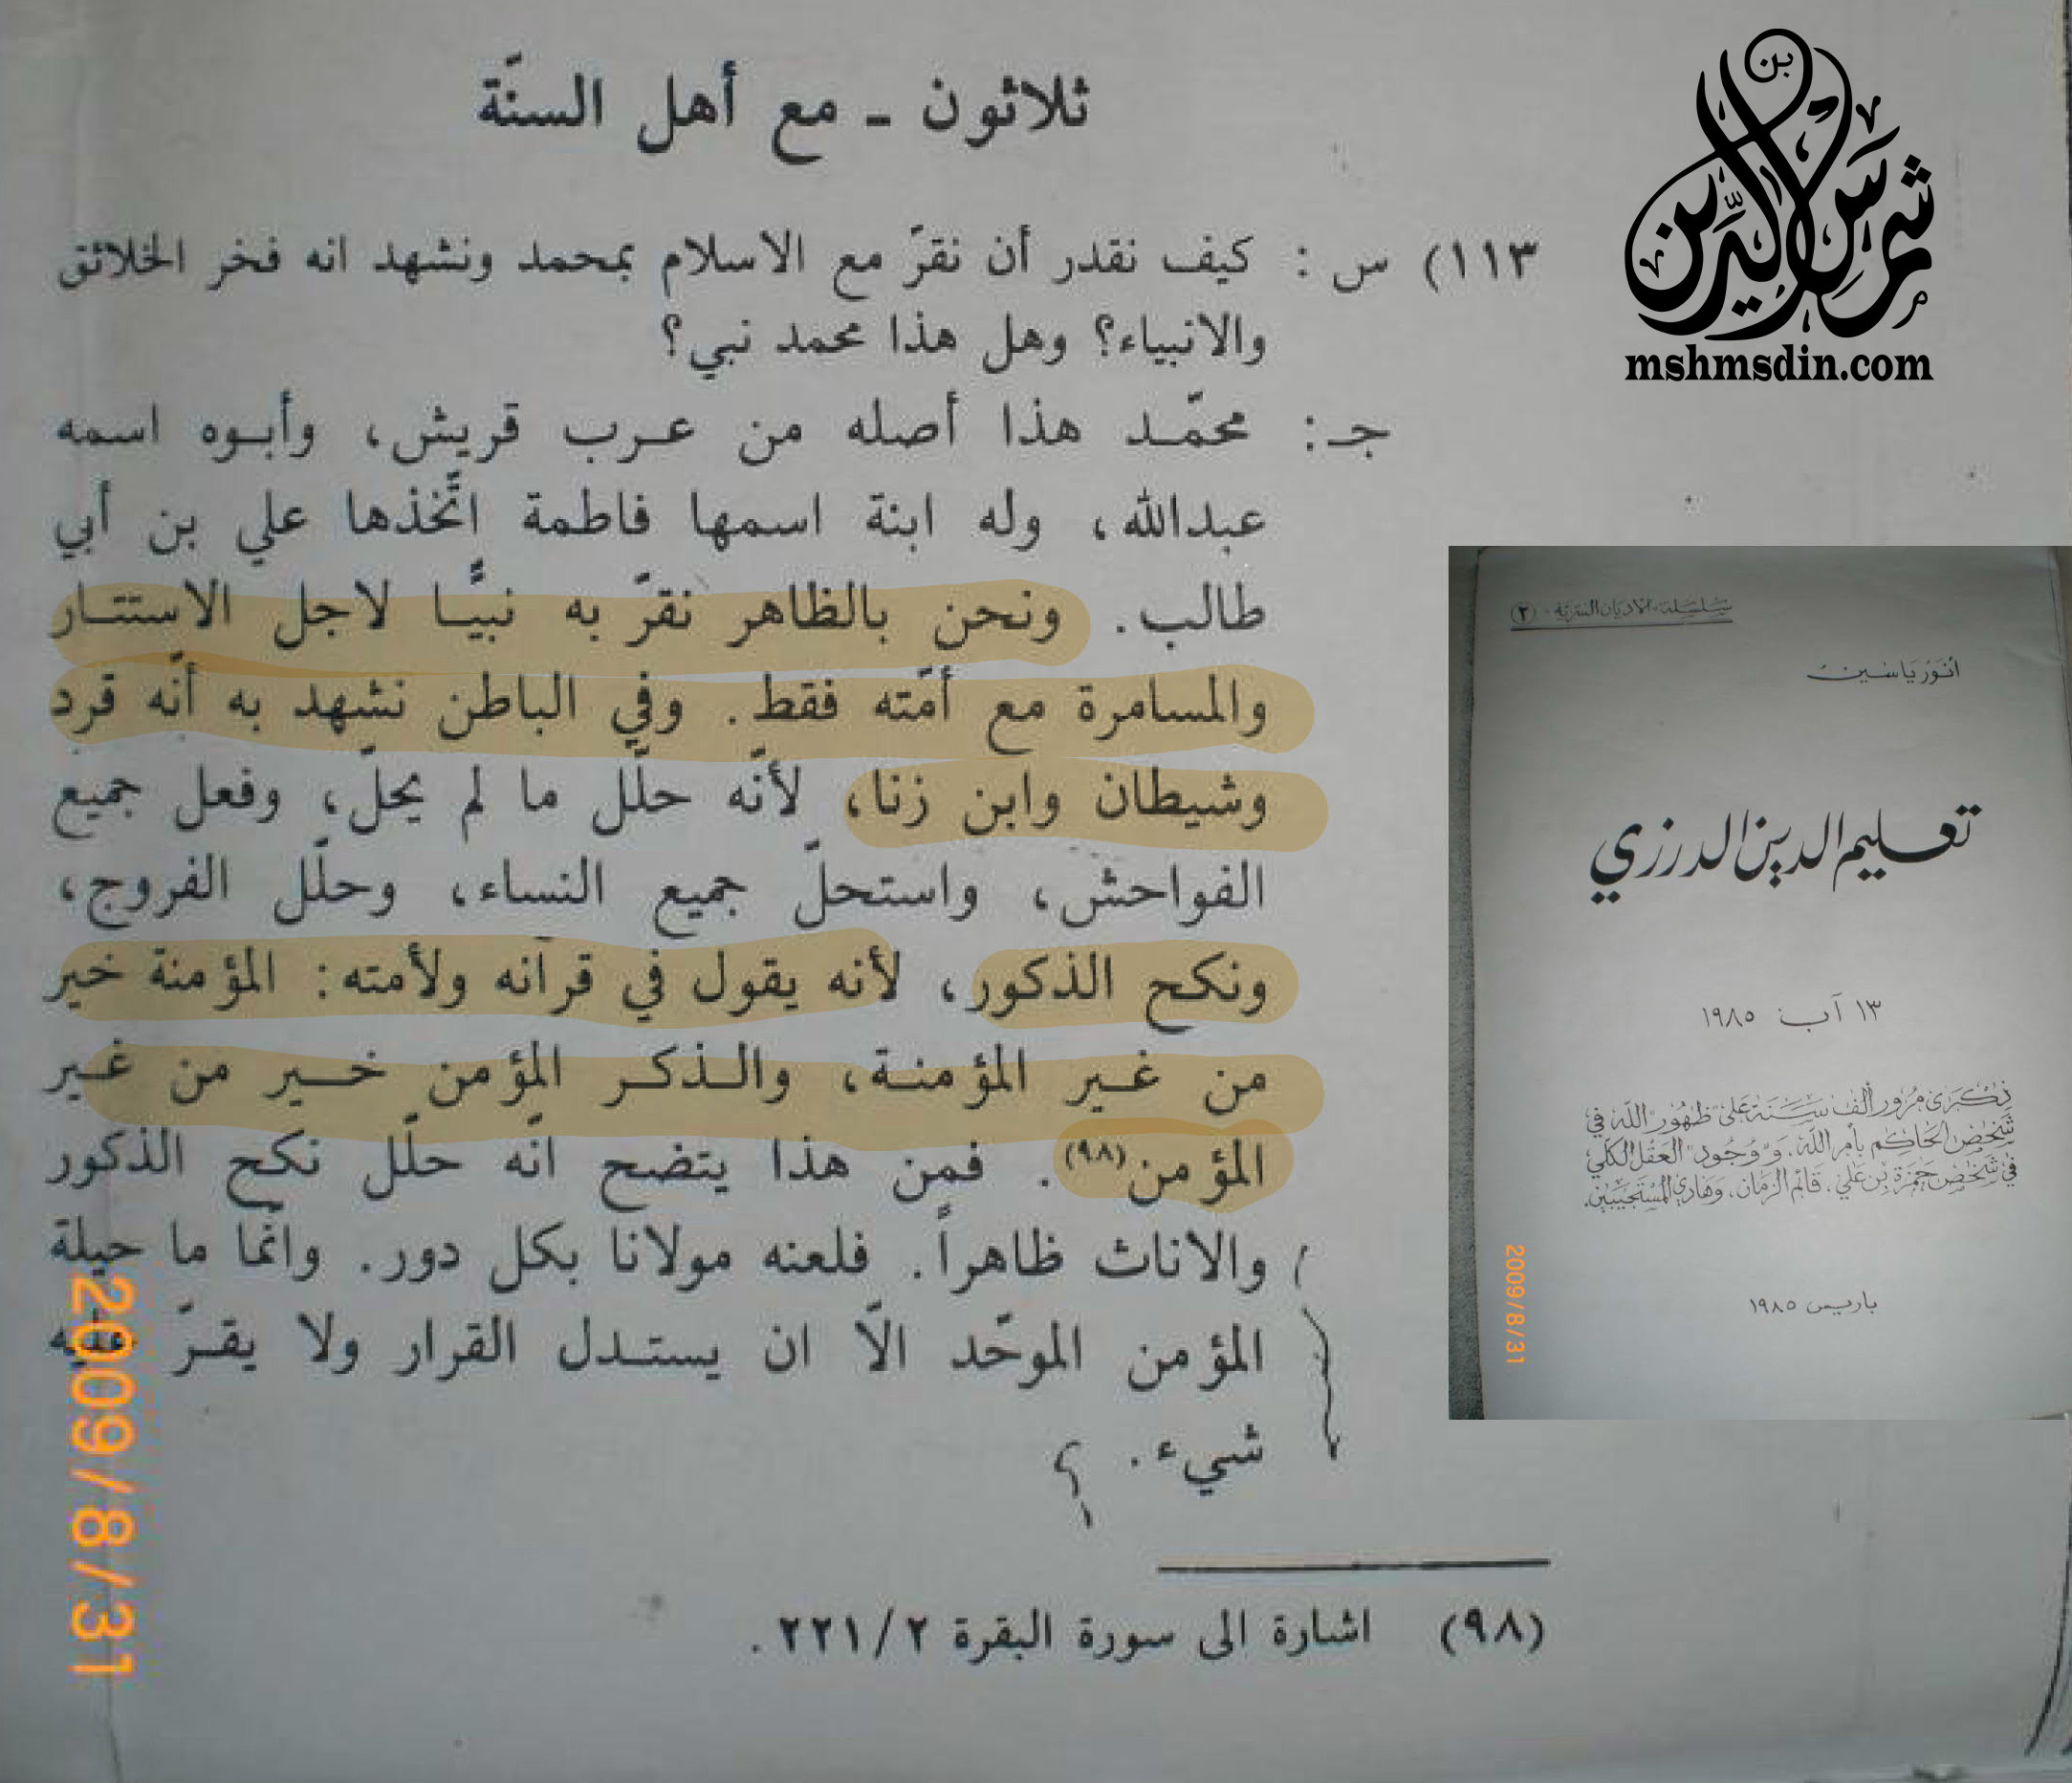 ثلاثون ـ مع أهل السنّة
١١٣) س : كيف نقدر أن نقرّ مع الاسلام بمحمد ونشهد انه فخر الخلائق
والانبياء؟ وهل هذا محمد نبي؟
جـ: محمّد هذا أصله من عرب قريش، وأبوه اسمه
عبدالله، وله ابنة اسمها فاطمة اتّخذها علي بن أبي
طالب. ونحن بالظاهر نقرّ به نبيًّا لاجل الاستتار
والمسامرة مع أمّته فقط. وفي الباطن نشهد به أنّه قرد
وشيطان وابن زنا، لأنّه حلّل ما لم يحلّ، وفعل جميع
الفواحش، واستحلّ جميع النساء، وحلّل الفروج،
ونكح الذكور، لأنه يقول في قرآنه ولأمته: المؤمنة خير
من غير المؤمنة، والذكر المؤمن خير من غير
المؤمن(٩٨). فمن هذا يتضح انّه حلّل نكح الذكور
والاناث ظاهراً. فلعنه مولانا بكل دور. وانّما ما حيلة
المؤمن الموحّد الاّ ان يستدل القرار ولا يقرّ عليه
شيء.
(٩٨) اشارة الى سورة البقرة ٢/٢٢١.
2009/8/31
شمس الدين
بن
mshmsdin.com
سلسلة الأديان السرية (٢)
أنور ياسين
تعليم الدين الدرزي
١٣ آب ١٩٨٥
ذكرى مرور ألف سنة على ظهور الله في
شخص الحاكم بأمر الله، ووجود "العقل الكلي"
في شخص حمزة بن علي، قائم الزمان، وهادي المستجيبين.
باريس ١٩٨٥
2009/8/31